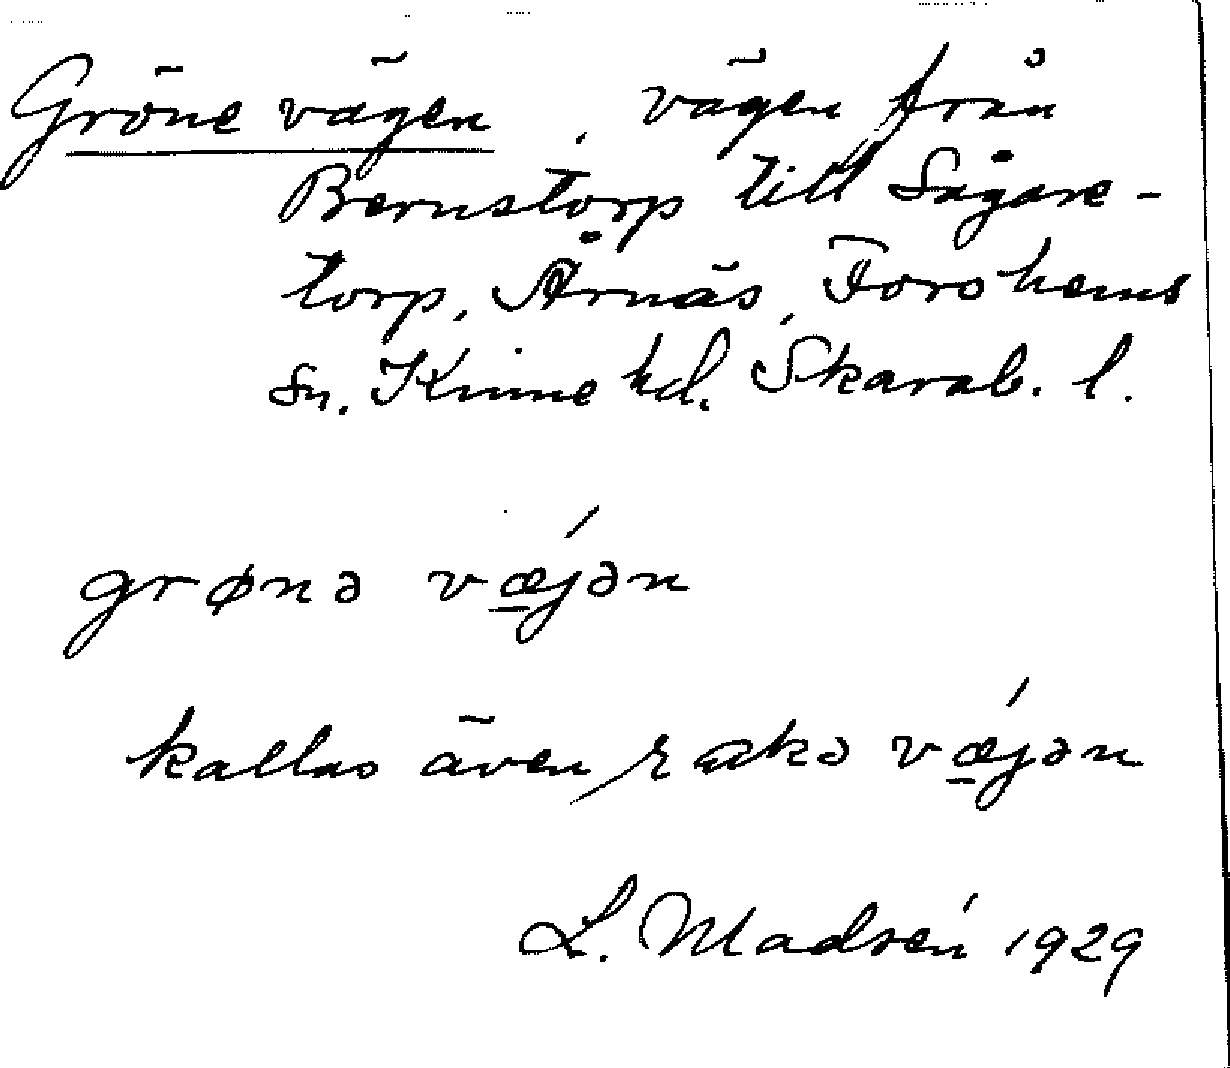 Gröne vägen, vägen från
Bernstorp till Sågare-
torp, Årnäs, Forshems
sn. Kinne hd. Skarab. l.
grønə vǽ̲jən
kallas även rakə vǽ̲jən
L. Madsén 1929